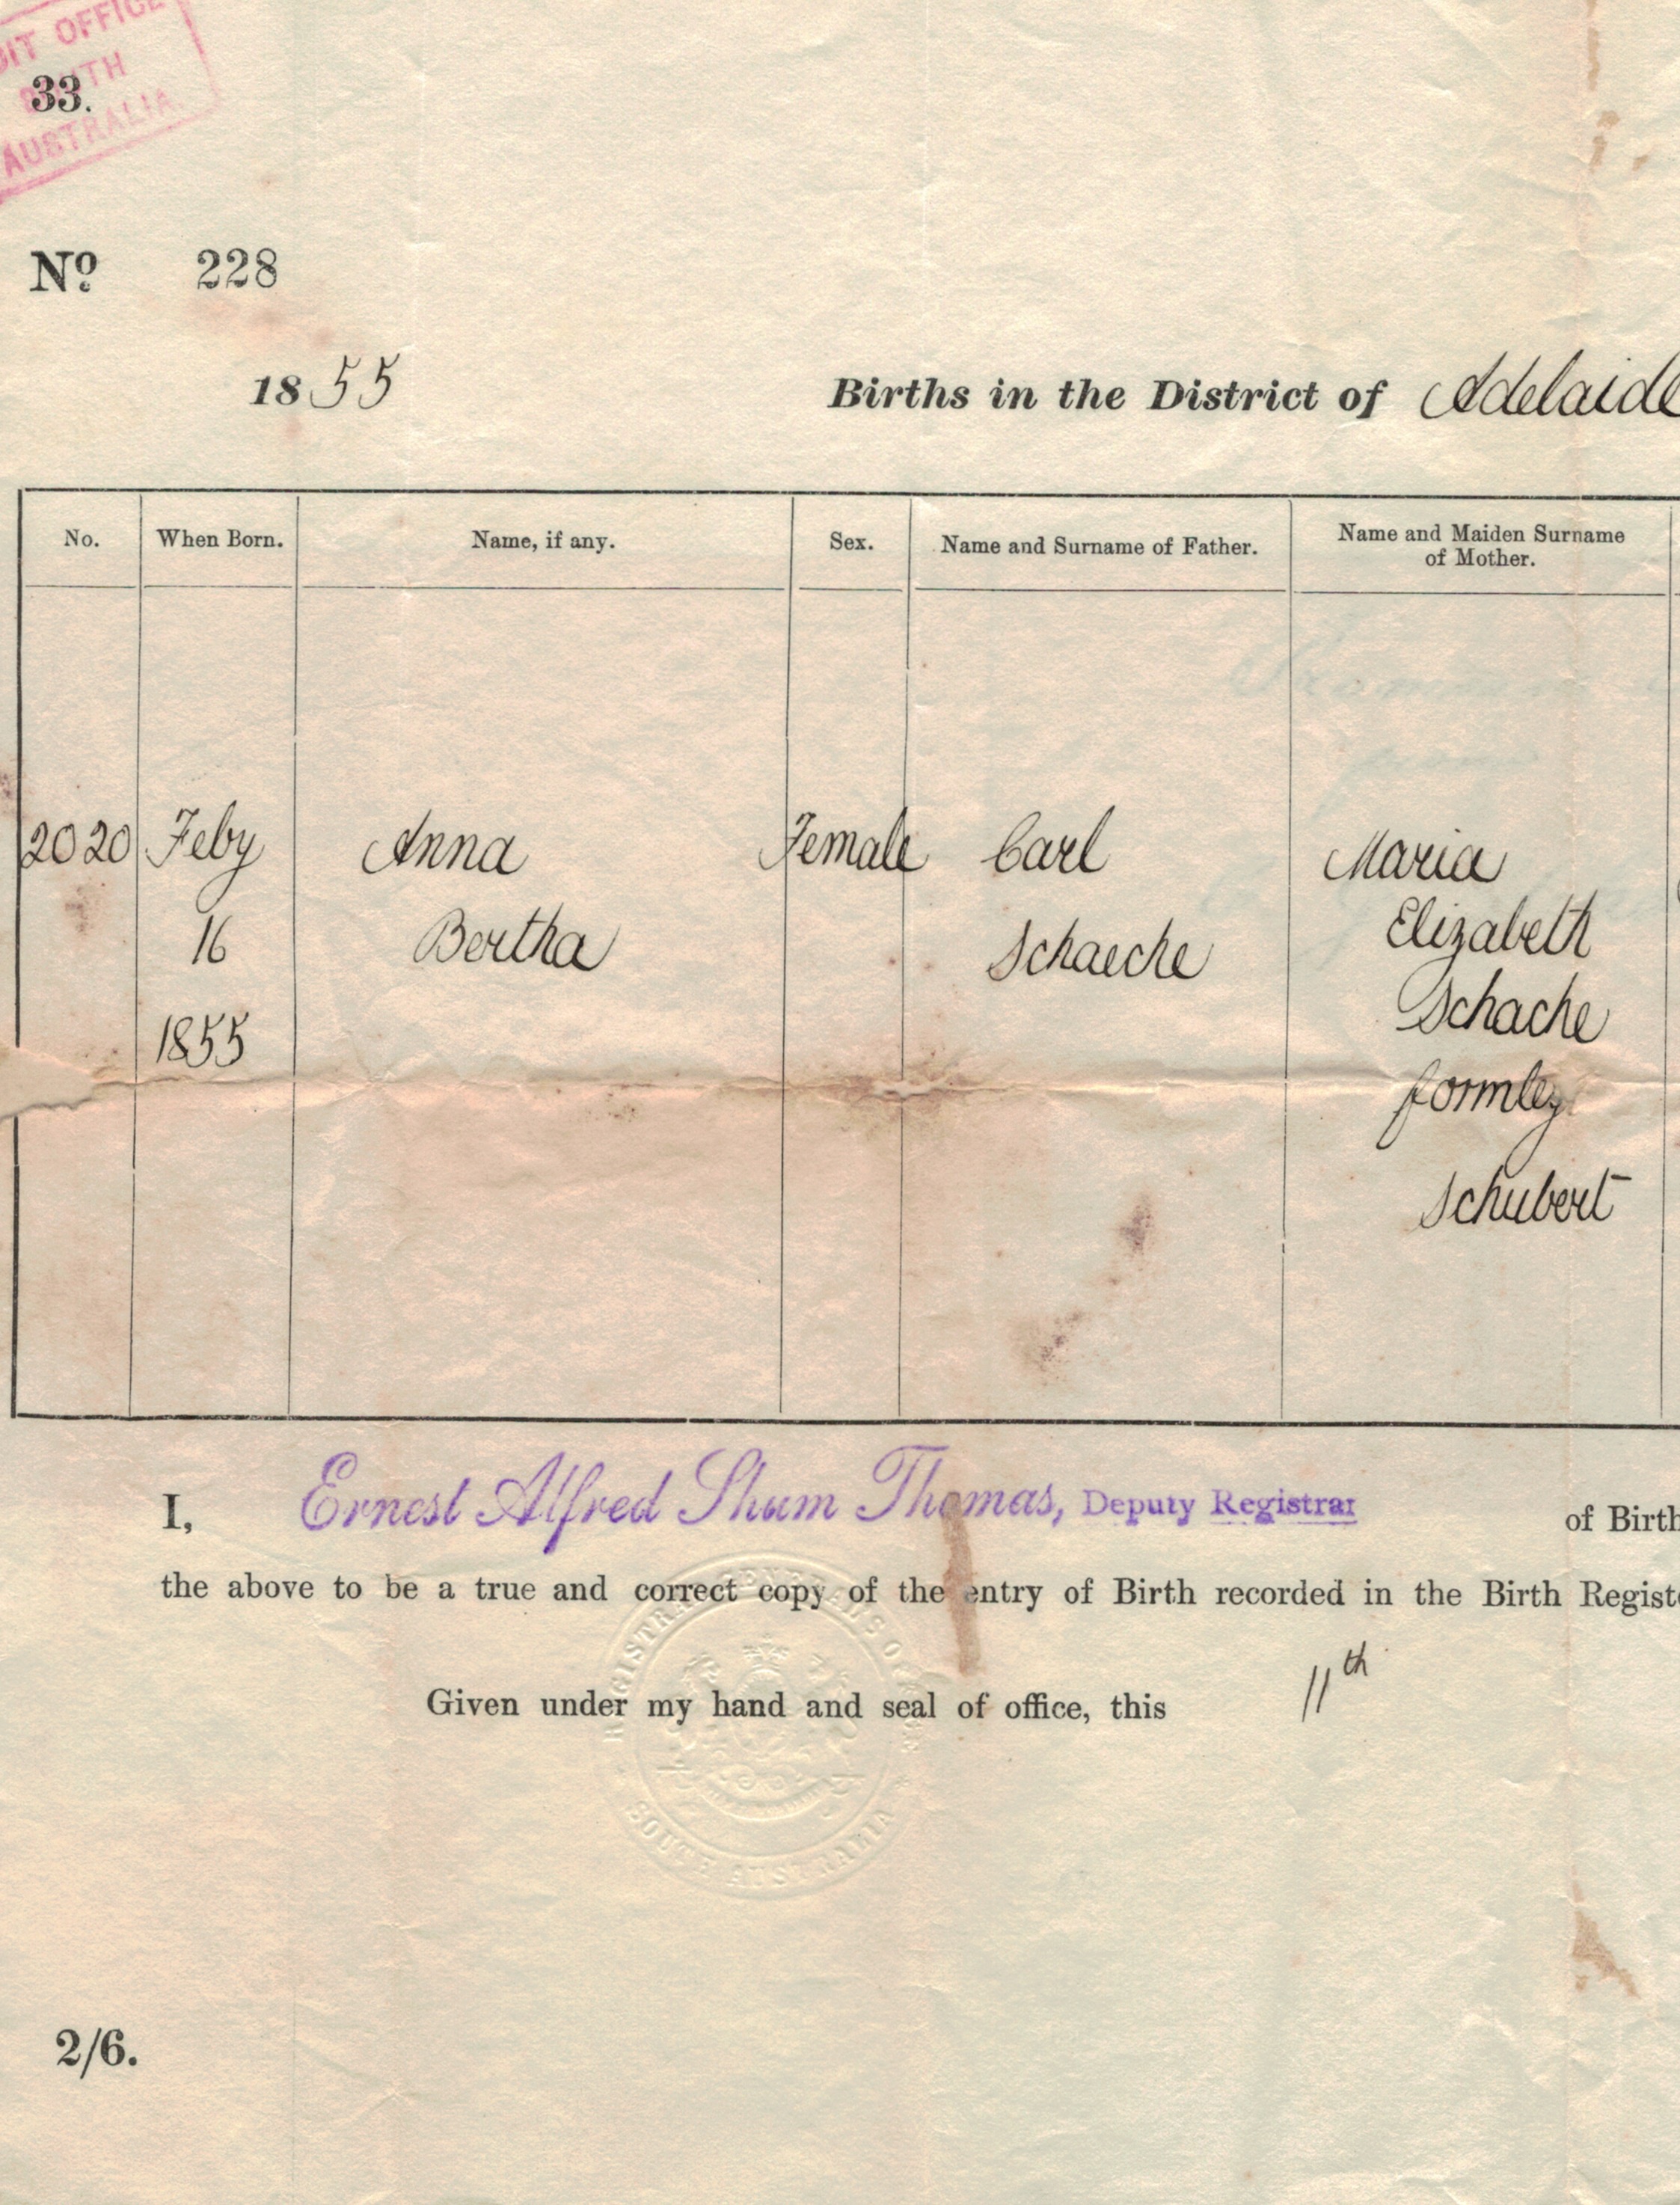 OFFICE
33.
AUSTRALIA
Nº 228
1855 Births in the District of Adelaide
No. When Born. Name, if any. Sex. Name and Surname of Father. Name and Maiden Surname
of Mother.
2020 Feby Anna Female Carl Maria
16 Bertha Schaeche Elizabeth
1855 Schache
formley
Schubert
I, Ernest Alfred Shum Thomas, Deputy Registrar of Birth
the above to be a true and correct copy of the entry of Birth recorded in the Birth Registe
Given under my hand and seal of office, this 11th
SOUTH AUSTRALIA
2/6.